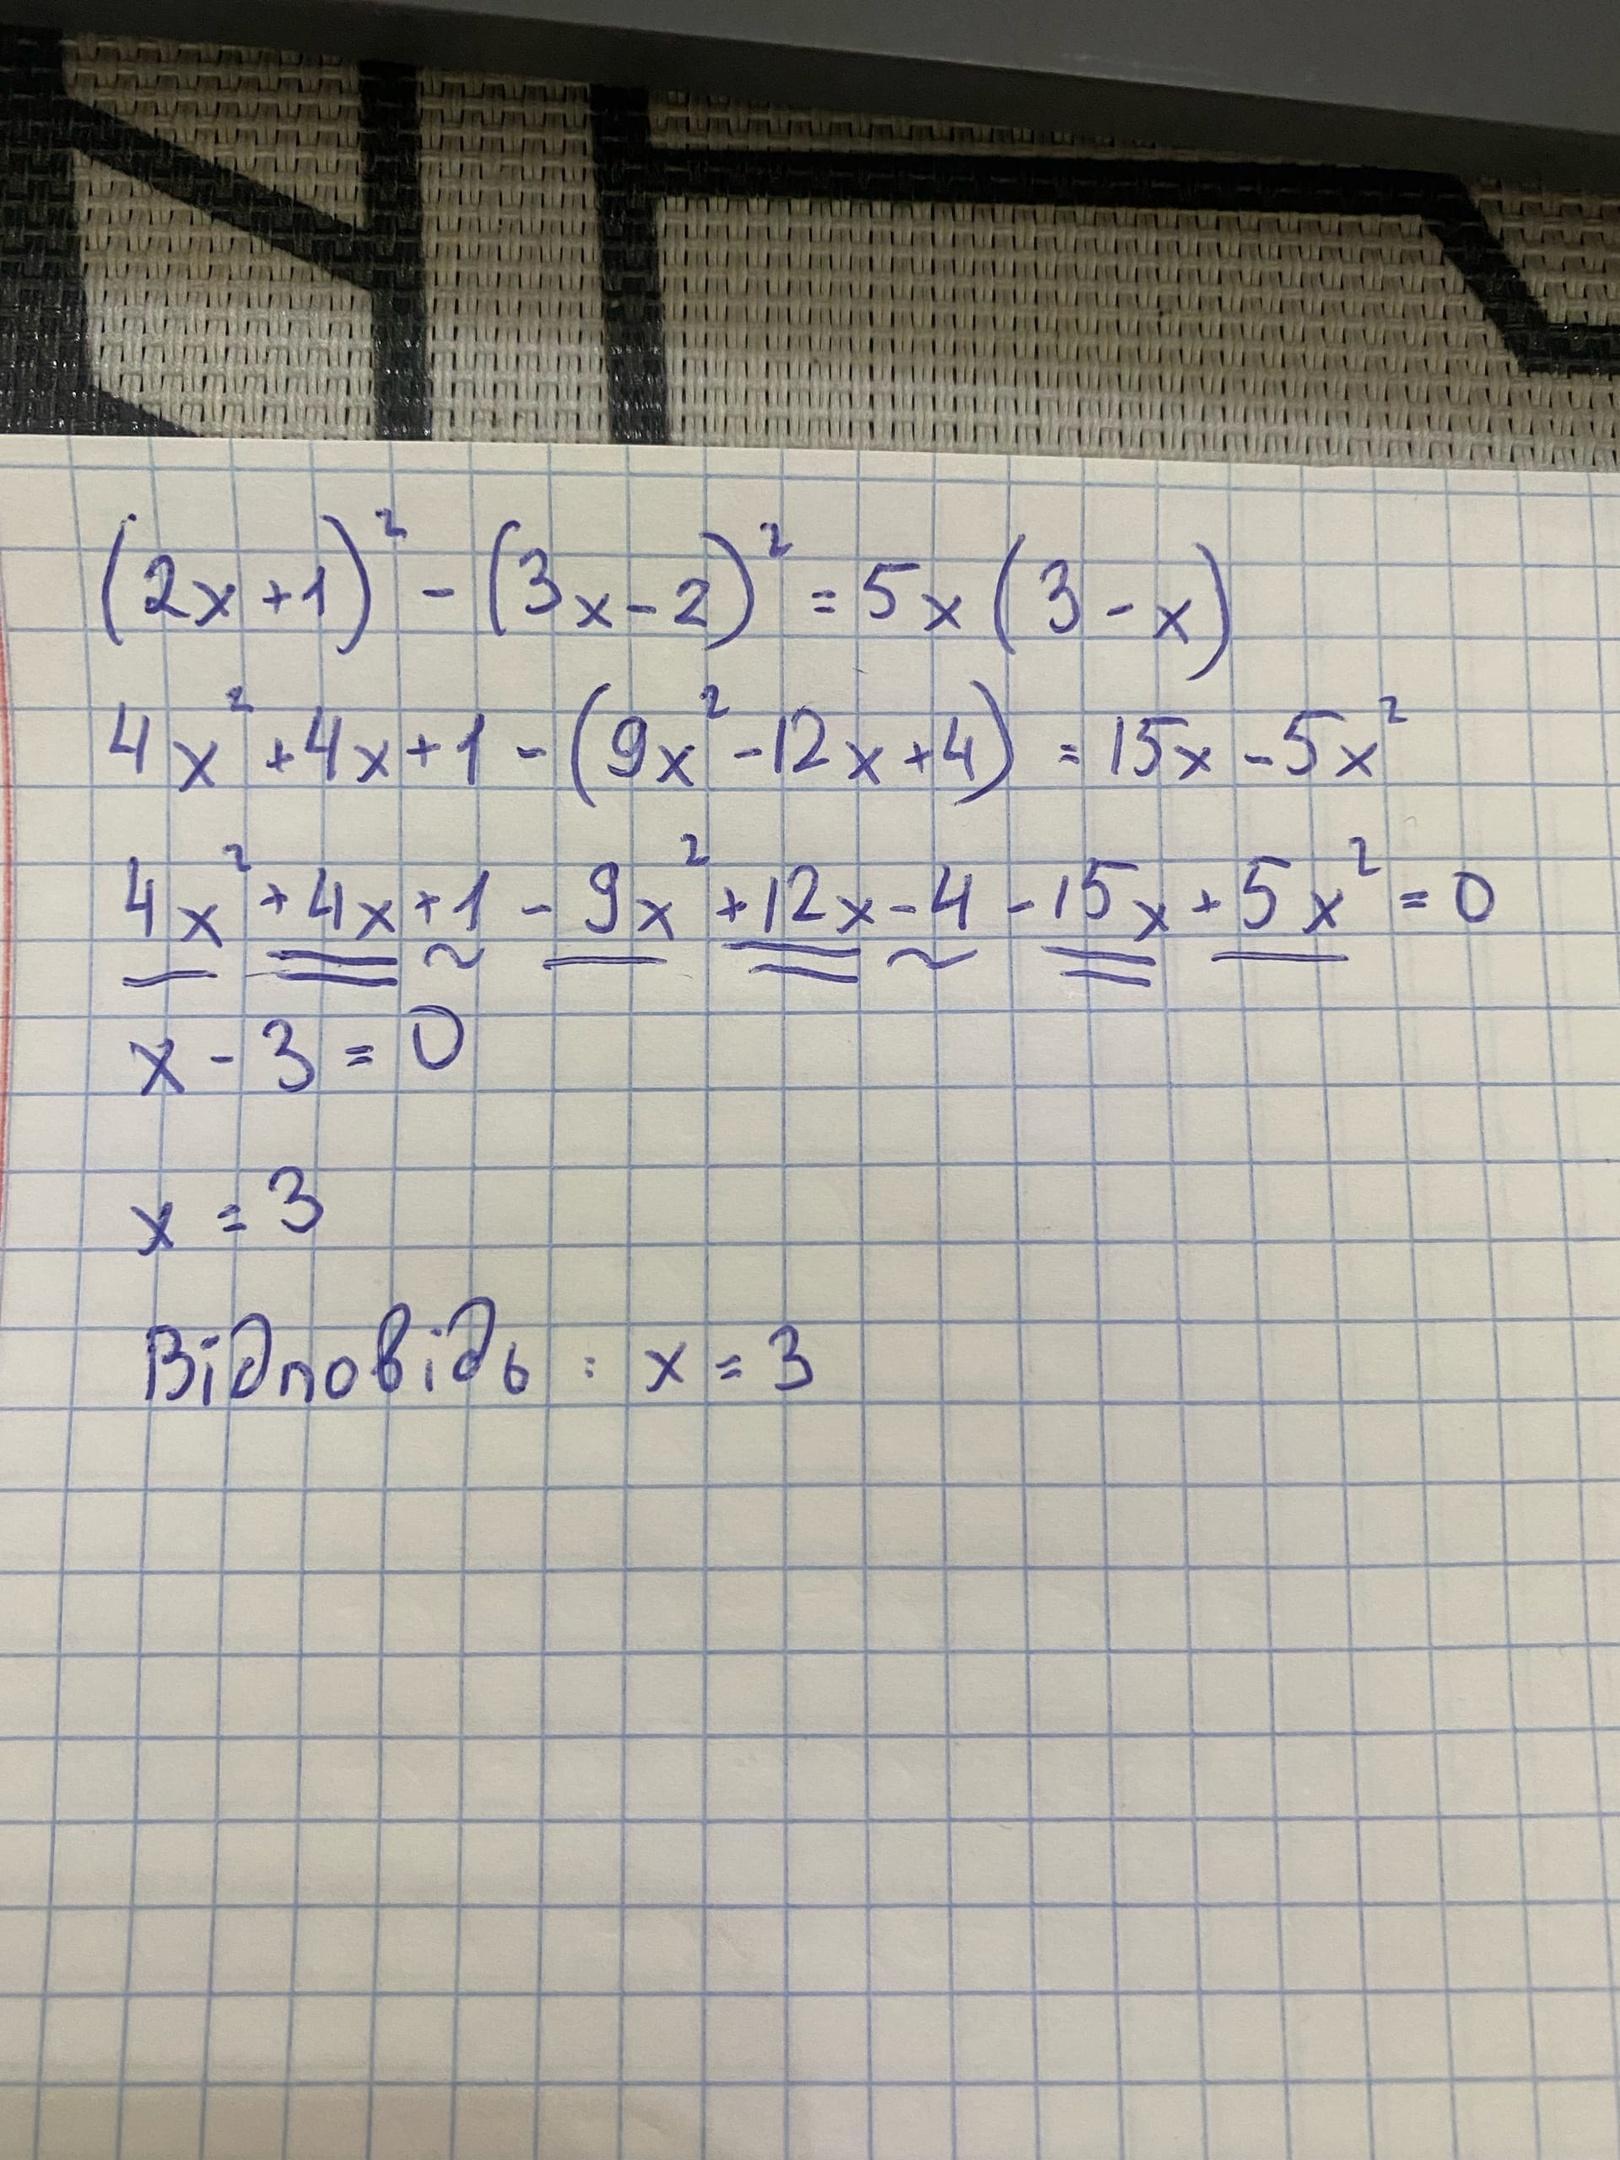 (2x+1)² - (3x-2)² = 5x(3-x)
4x² +4x+1 - (9x² -12x+4) = 15x -5x²
4x² +4x+1 - 9x² +12x-4 -15x +5x² = 0
x - 3 = 0
x = 3
Відповідь : x = 3